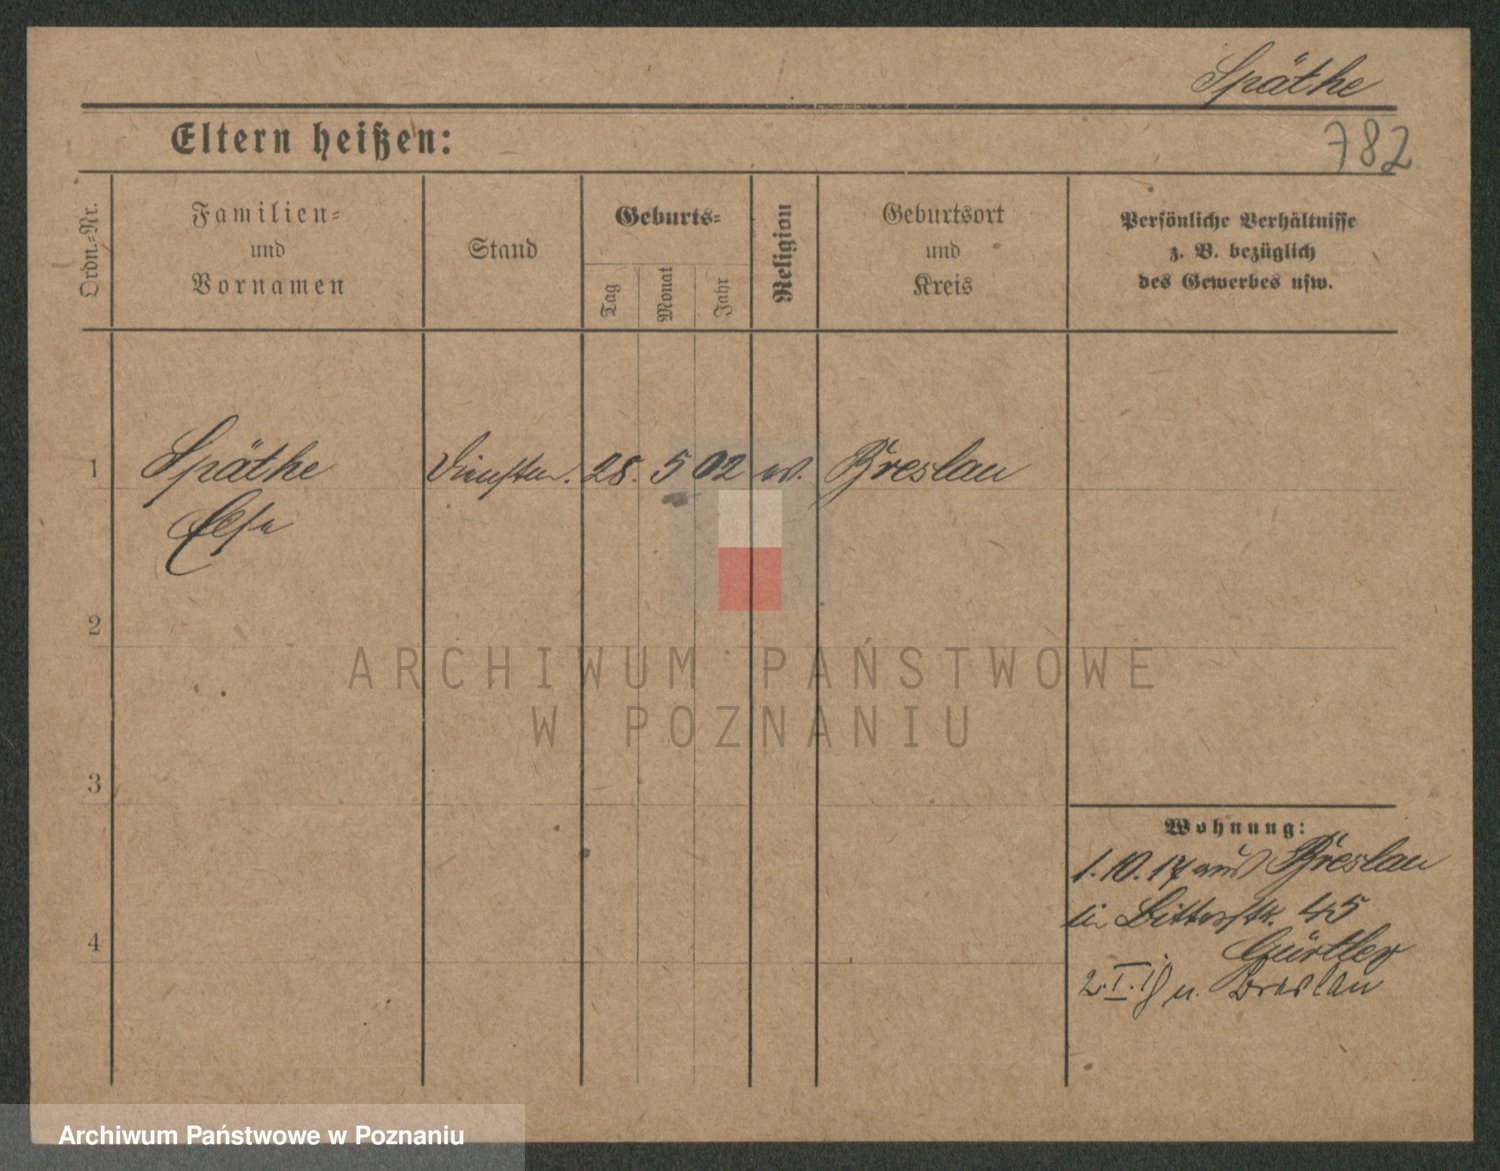 Späthe
Eltern heißen:
782
Ordn.-Nr.
Familien-
und
Vornamen
Stand
Geburts-
Tag
Monat
Jahr
Religion
Geburtsort
und
Kreis
Persönliche Verhältnisse
z. B. bezüglich
des Gewerbes usw.
1 Späthe 28. 5 02 Breslau
Else
2
3
4
Wohnung:
1.10.17 aus Breslau
in 45
Gürtler
2.I. n. Breslau
ARCHIWUM PAŃSTWOWE
W POZNANIU
Archiwum Państwowe w Poznaniu